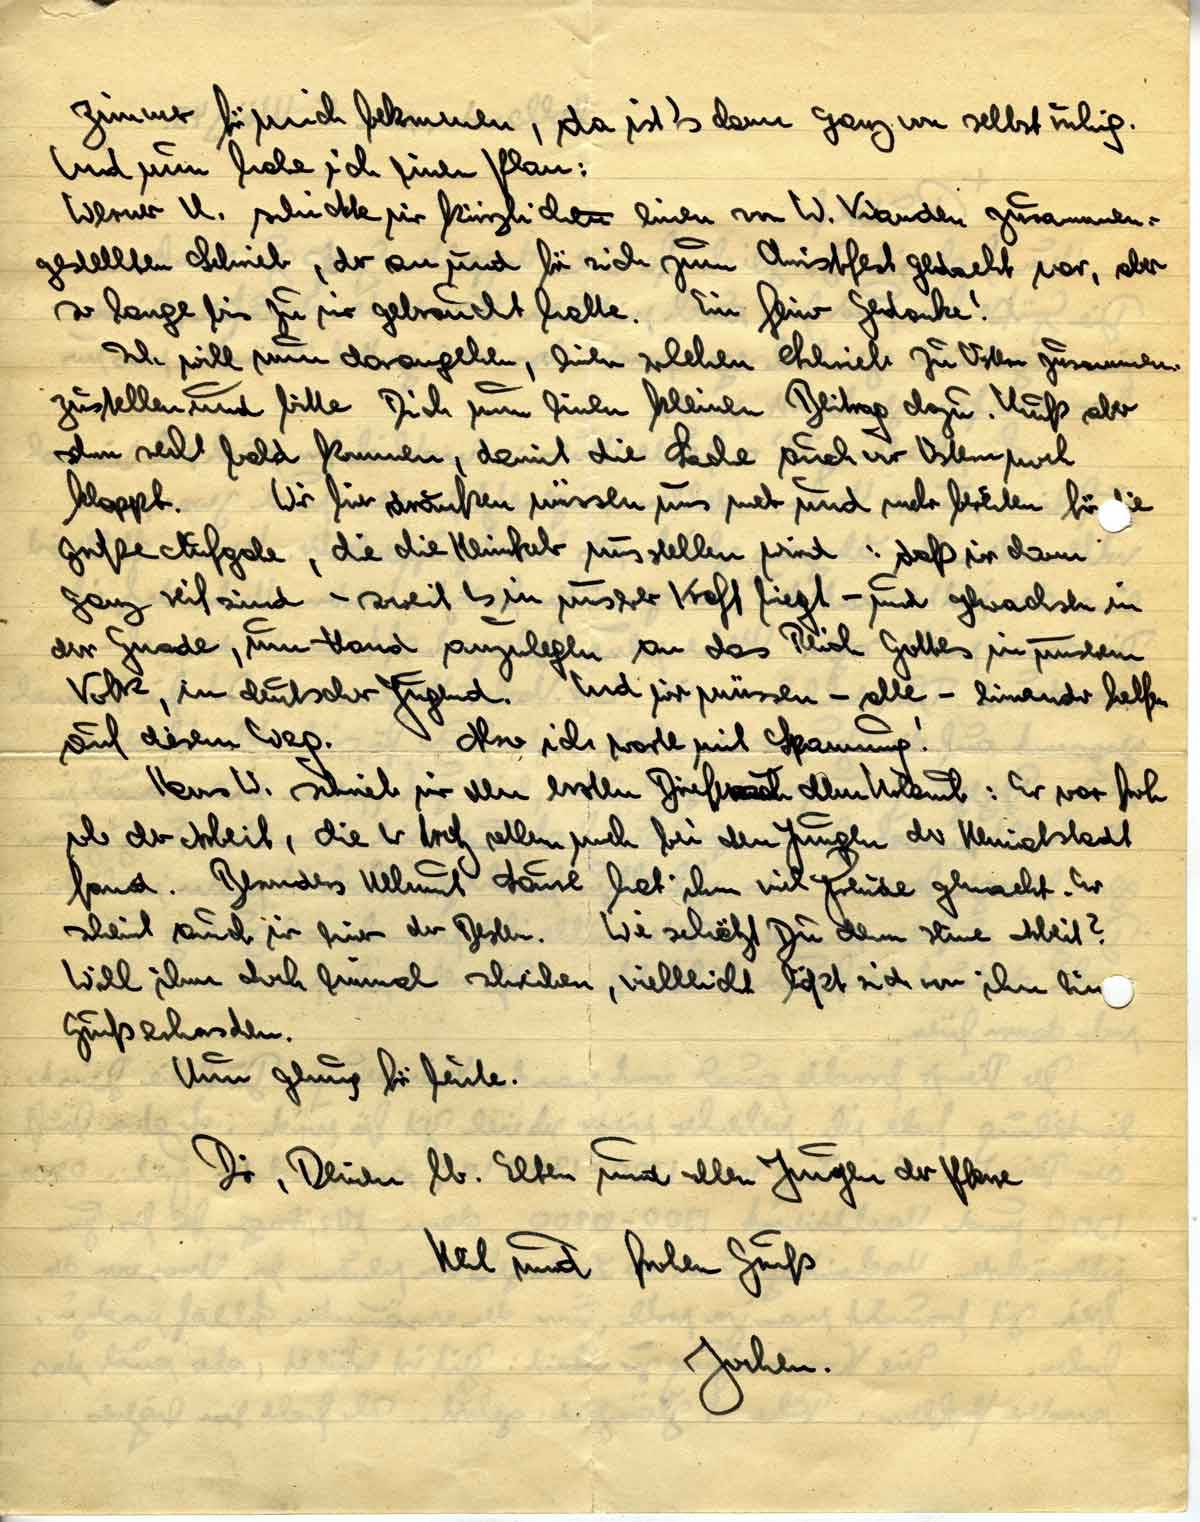 Zimmer für mich bekommen, da ist's dann ganz von selbst ruhig.
Und nun habe ich einen Plan:
Werner K. schickte mir kürzlich einen von W. Vianden zusammen-
gestellten Schrieb, der an und für sich zum Christfest gedacht war, aber
so lange bis zu mir gebraucht hatte. Ein feiner Gedanke!
Ich will nun darangehen, einen solchen Schrieb zu Ostern zusammen-
zustellen und bitte Dich nun einen kleinen Beitrag dazu. Muß aber
dann recht bald kommen, damit die Sache auch vor Ostern noch
klappt. Wir hier draußen müssen uns mehr und mehr bereiten für die
große Aufgabe, die die Heimkehr uns stellen wird: daß wir dann
ganz reif sind – soweit es in unserer Kraft liegt – und gewachsen in
der Gnade, um Hand anzulegen an das Reich Gottes in unserem
Volk, in deutscher Jugend. Und wir müssen – alle – einander helfen
auf diesem Weg. Also ich warte mit Spannung!
Hans W. schrieb mir den ersten Brief nach dem Urlaub: Er war froh
ob der Arbeit, die er trotz allem noch bei den Jungen der Heimatstadt
fand. Besonders Helmut hat ihm viel Freude gemacht. Er
scheint auch mir einer der Besten. Wie schätzt Du denn seine Arbeit?
Will ihm doch einmal schreiben, vielleicht läßt sich von ihm ein
Gruß
Nun genug für heute.
Dir, Deinen lb. Eltern und allen Jungen der Pfarre
Heil und frohen Gruß
Jochen.